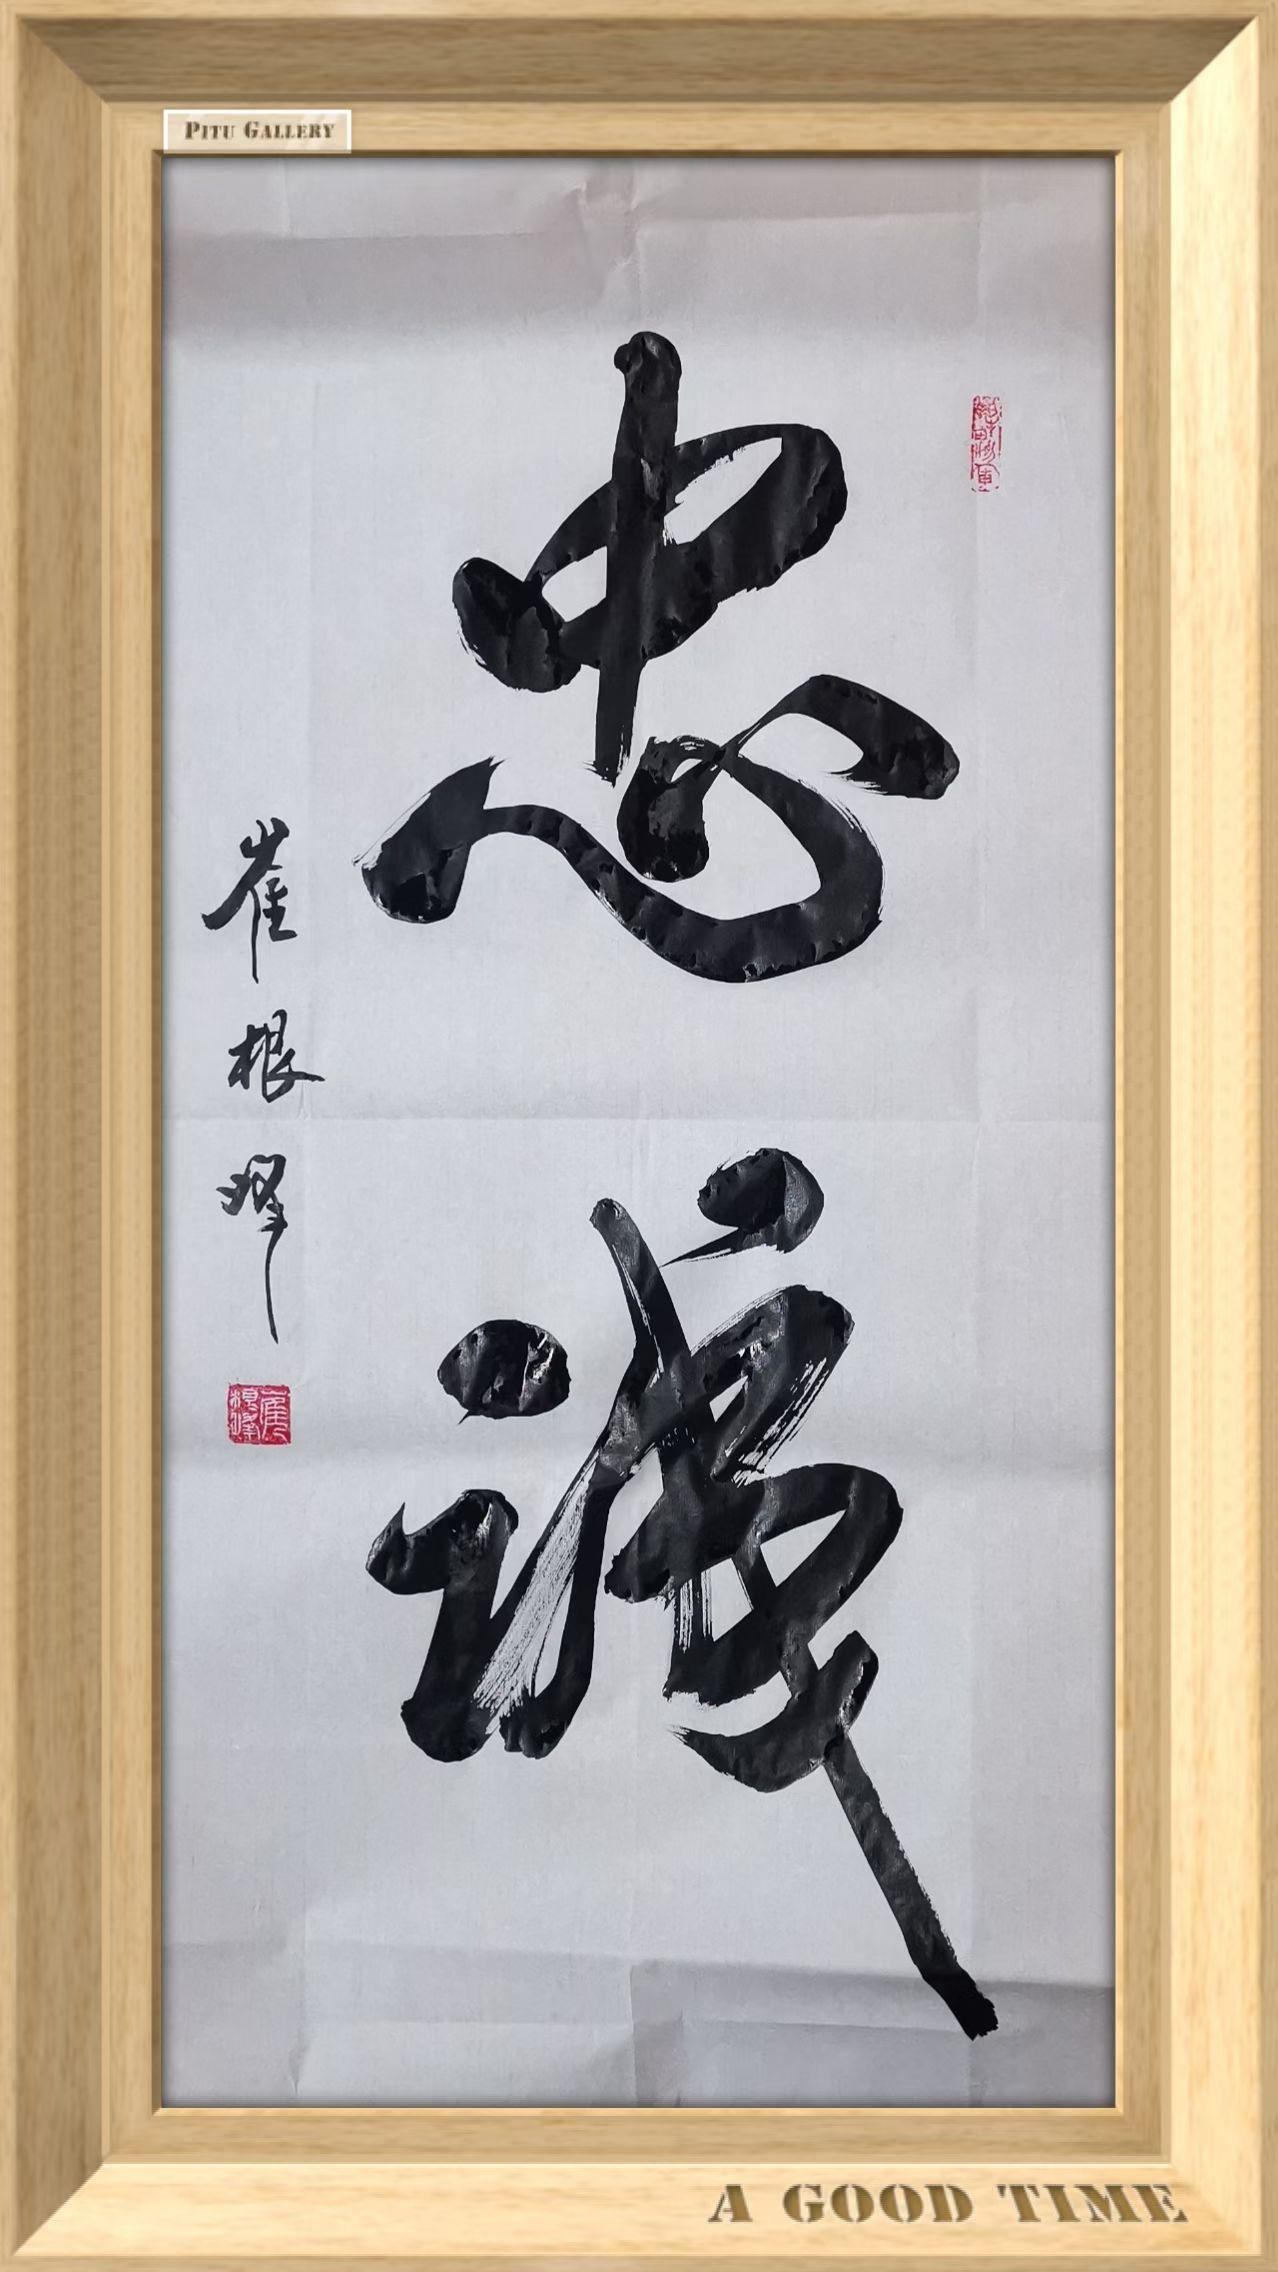 忠诚
崔根峰
PITU GALLERY
A GOOD TIME